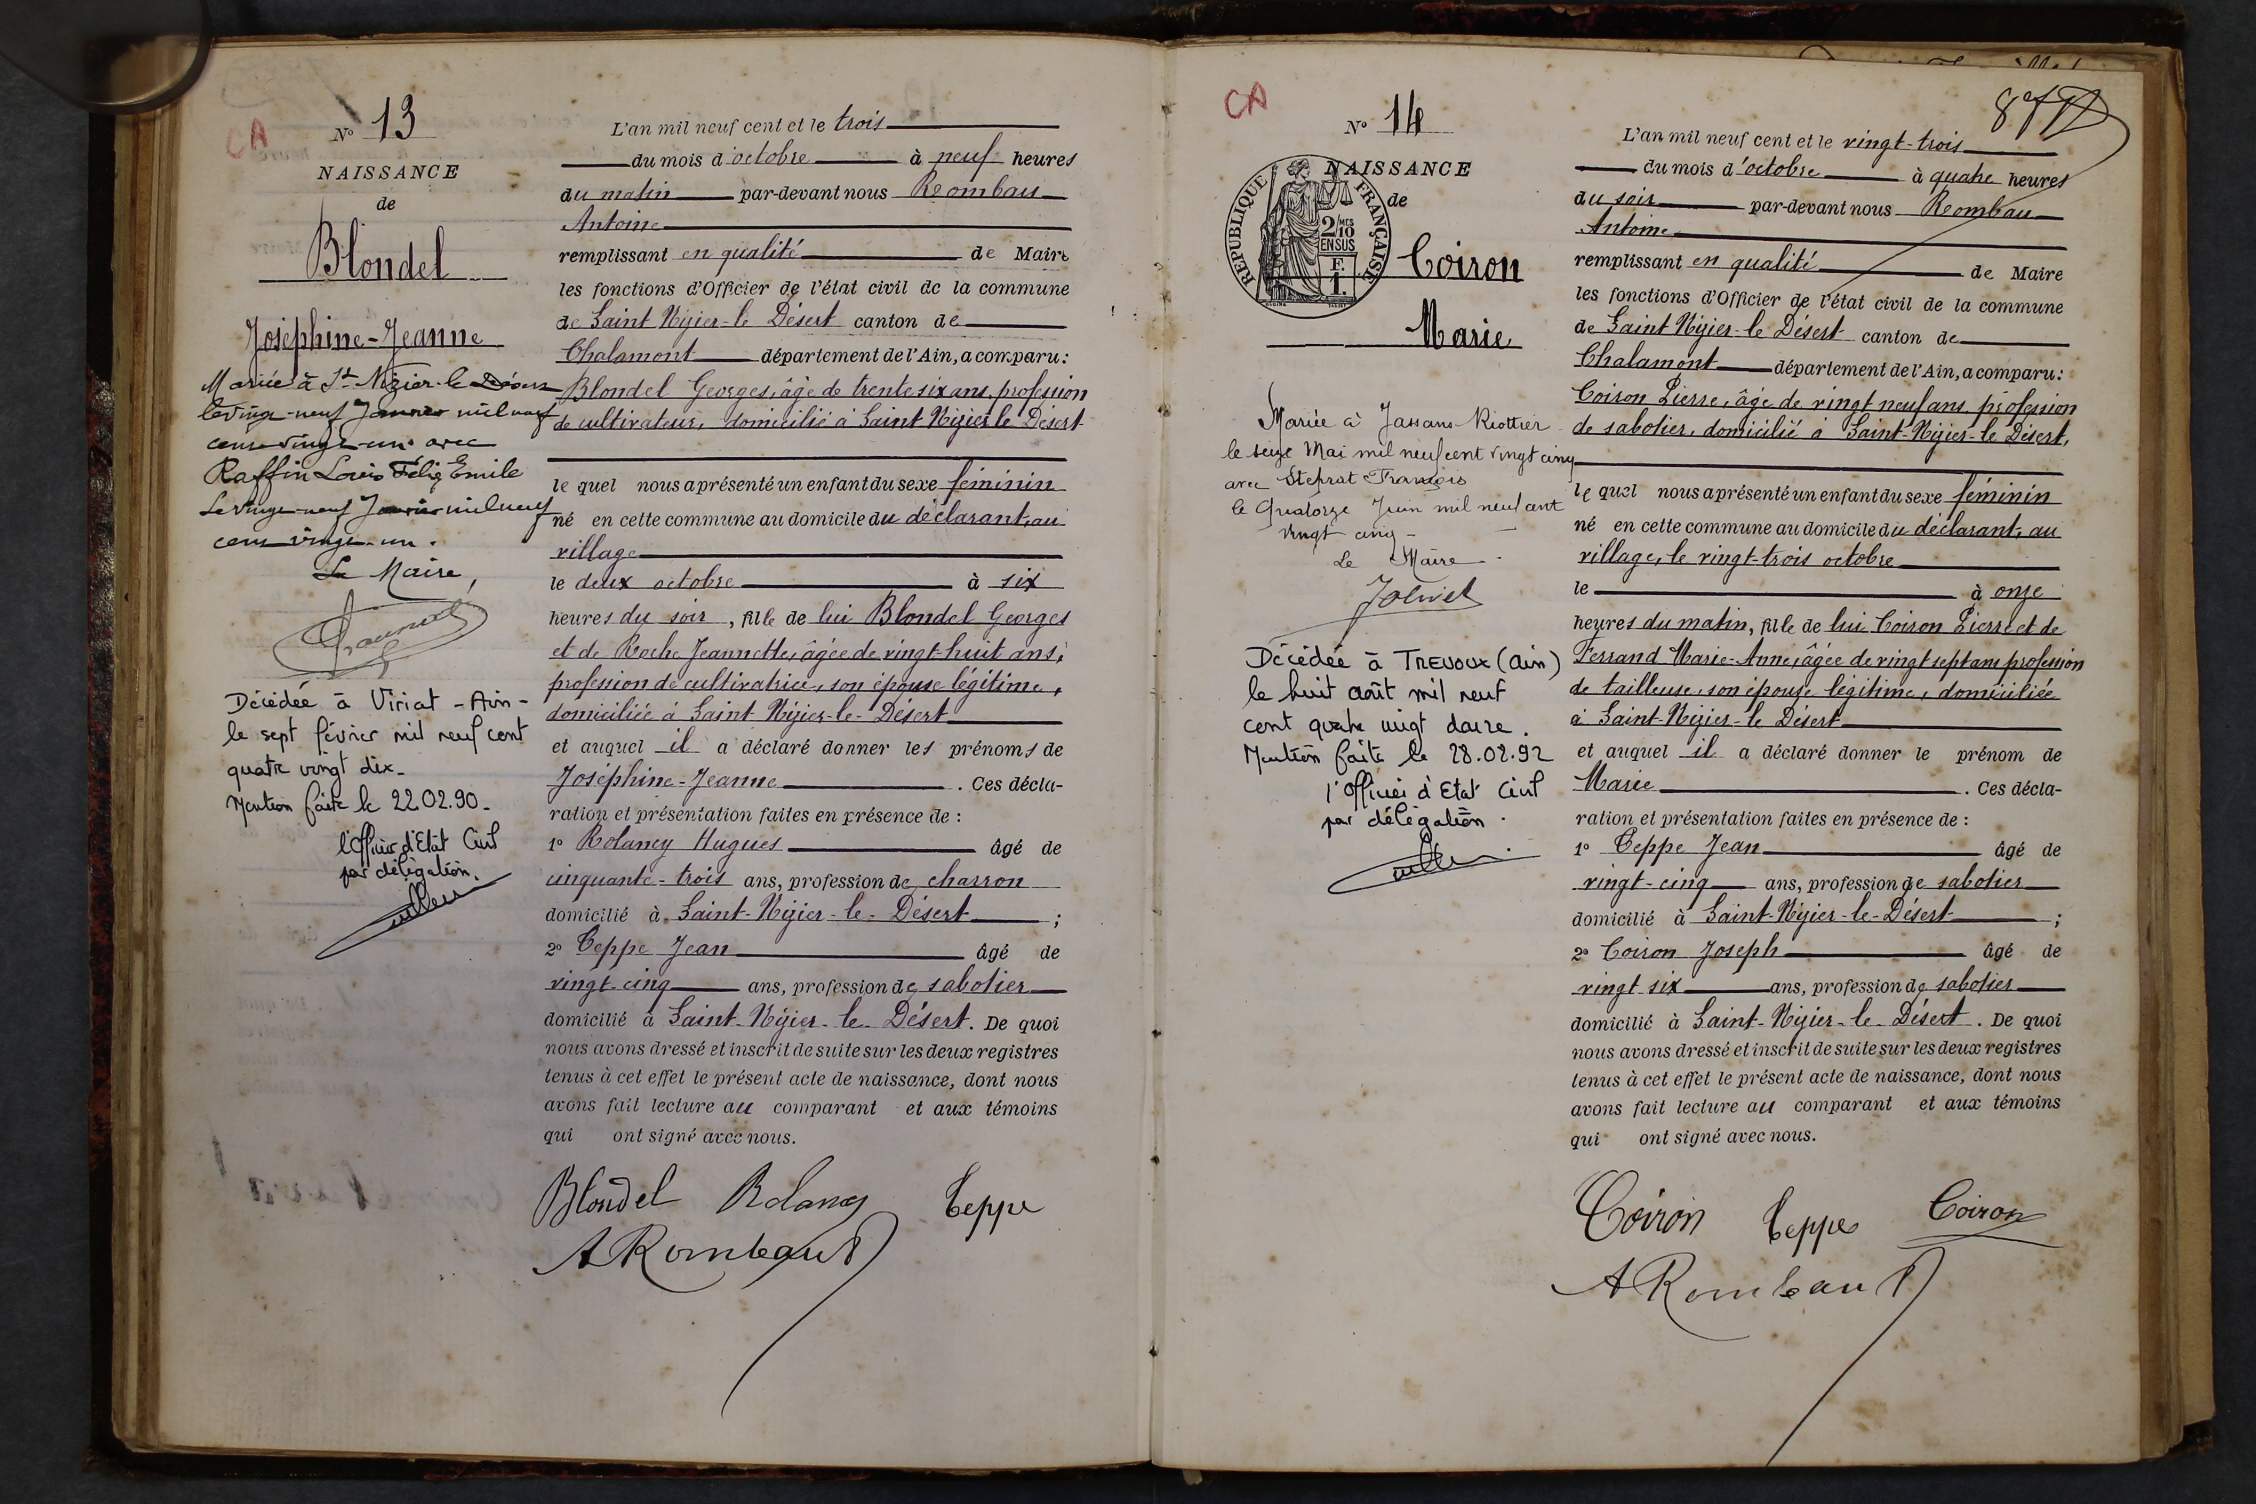 CA
N° 13
NAISSANCE
de
Blondel
Joséphine-Jeanne
Mariée à St Nizier-le Désert
le vingt-neuf Janvier mil neuf
cent vingt-un avec
Raffin Louis Félix Emile
Le vingt-neuf Janvier mil neuf
cent vingt-un.
Le Maire,
Décédée à Viriat - Ain -
le sept février mil neuf cent
quatre vingt dix_
Mention faite le 22 02.90_
l'Officier d'Etat Civil
par délégation.
L'an mil neuf cent et le trois
du mois d'octobre à neuf heures
du matin par-devant nous Rombau
Antoine
remplissant en qualité de Maire
les fonctions d'Officier de l'état civil de la commune
de Saint Nizier-le Désert canton de
Chalamont département de l'Ain, a comparu:
Blondel Georges, âgé de trente six ans, profession
de cultivateur, domicilié à Saint Nizier le Désert
le quel nous a présenté un enfant du sexe féminin
né en cette commune au domicile du déclarant, au
village
le deux octobre à six
heures du soir, fille de lui Blondel Georges
et de Roche Jeannette, âgée de vingt-huit ans,
profession de cultivatrice, son épouse légitime,
domiciliée à Saint Nizier-le-Désert
et auquel il a déclaré donner les prénoms de
Joséphine-Jeanne. Ces décla-
ration et présentation faites en présence de :
1° Rolancy Hugues âgé de
cinquante-trois ans, profession de charron
domicilié à Saint-Nizier-le-Désert ;
2° Teppe Jean âgé de
vingt-cinq ans, profession de sabotier
domicilié à Saint-Nizier-le-Désert. De quoi
nous avons dressé et inscrit de suite sur les deux registres
tenus à cet effet le présent acte de naissance, dont nous
avons fait lecture au comparant et aux témoins
qui ont signé avec nous.
Blondel Rolancy Teppe
A Rombaud
CA
N° 14
NAISSANCE
de
RÉPUBLIQUE FRANÇAISE
2/10 MES
EN SUS
F.
1.
Coiron
Marie
Mariée à Jassans-Riottier
le seize Mai mil neuf cent vingt cinq
avec Steprat François
le Quatorze Juin mil neuf cent
vingt cinq -
Le Maire
Jolivet
Décédée à TREVOUX (Ain)
le huit août mil neuf
cent quatre vingt douze.
Mention faite le 28.08.92
l'Officier d'Etat Civil
par délégation.
87
L'an mil neuf cent et le vingt-trois
du mois d'octobre à quatre heures
du soir par-devant nous Rombau
Antoine
remplissant en qualité de Maire
les fonctions d'Officier de l'état civil de la commune
de Saint Nizier-le Désert canton de
Chalamont département de l'Ain, a comparu:
Coiron Pierre, âgé de vingt neuf ans, profession
de sabotier, domicilié à Saint-Nizier-le Désert,
le quel nous a présenté un enfant du sexe féminin
né en cette commune au domicile du déclarant, au
village, le vingt-trois octobre
le à onze
heures du matin, fille de lui Coiron Pierre et de
Ferrand Marie-Anne, âgée de vingt sept ans profession
de tailleuse, son épouse légitime, domiciliée
à Saint-Nizier-le Désert
et auquel il a déclaré donner le prénom de
Marie. Ces décla-
ration et présentation faites en présence de :
1° Teppe Jean âgé de
vingt-cinq ans, profession de sabotier
domicilié à Saint-Nizier-le-Désert ;
2° Coiron Joseph âgé de
vingt six ans, profession de sabotier
domicilié à Saint-Nizier-le-Désert. De quoi
nous avons dressé et inscrit de suite sur les deux registres
tenus à cet effet le présent acte de naissance, dont nous
avons fait lecture au comparant et aux témoins
qui ont signé avec nous.
Coiron Teppe Coiron
A Rombaud